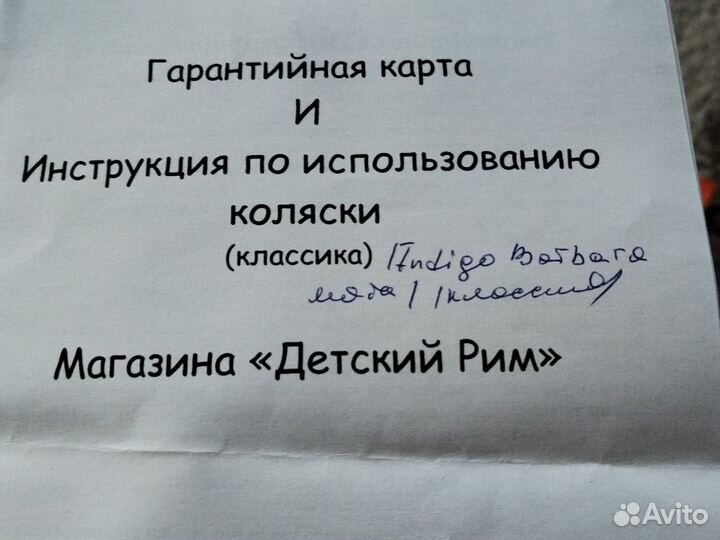 Гарантийная карта
И
Инструкция по использованию
коляски
(классика) /Indigo Barbara
мята/ /классика/
Магазина «Детский Рим»
Avito